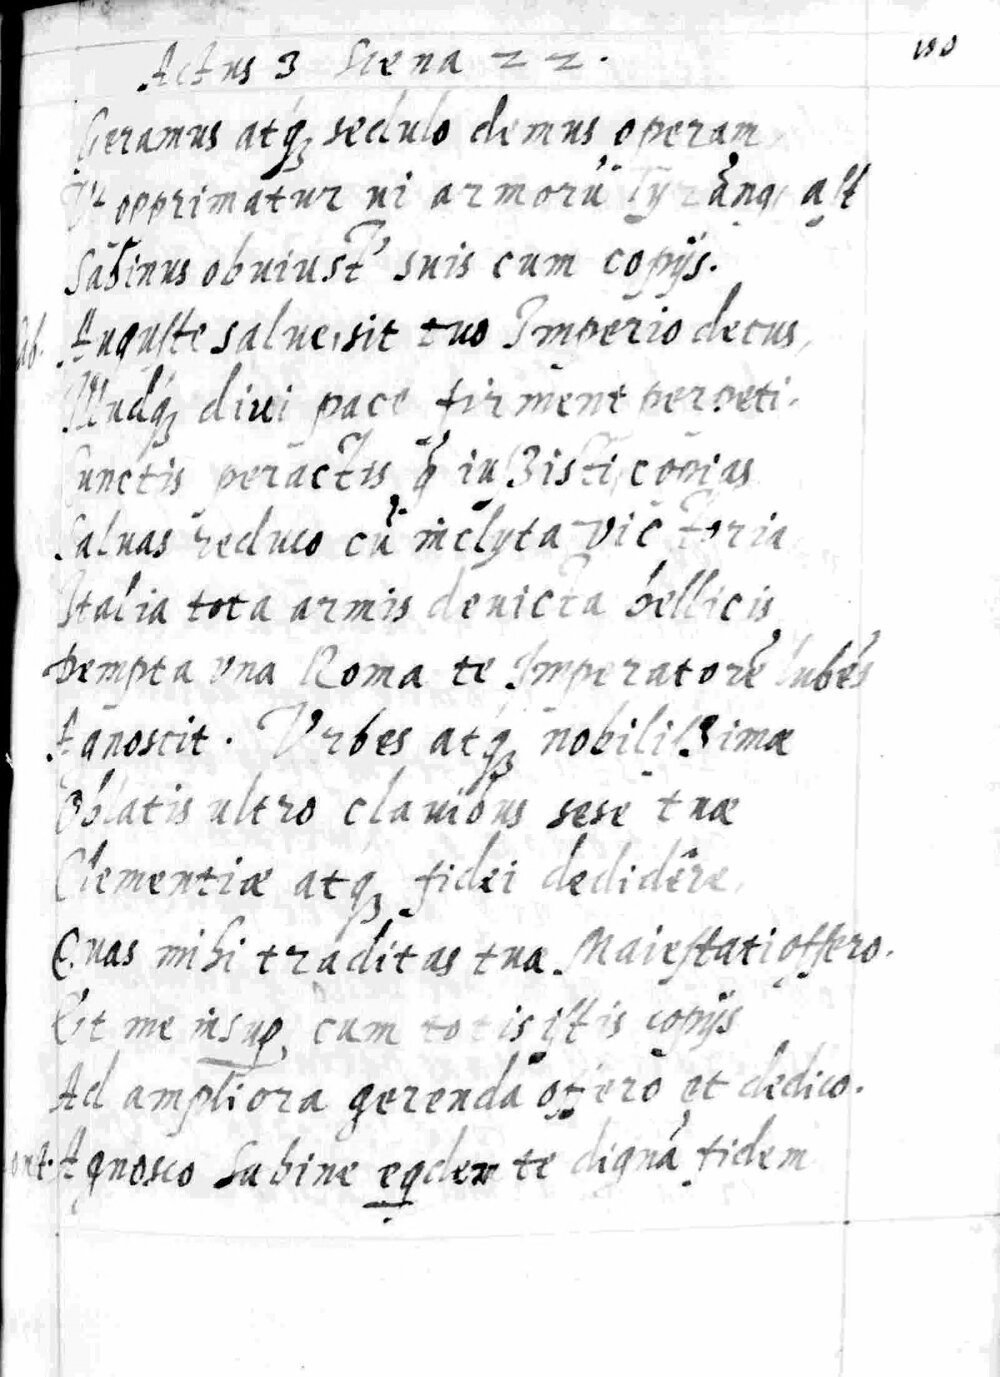 Actus 3 Scena 22.
180
Geramus atq₃ sedulo demus operam
Vt opprimatur ui armorũ Tyrãn9 ast
Sabinus obuius t̃ suis cum copijs.
Sab. Auguste salue, sit tuo Imperio decus,
Illudq₃ diui pace firment perpeti.
Cunctis peractis q̃ iussisti, copias
Saluas reduco cũ inclyta victoria
Italia tota armis deuicta bellicis
Dempta vna Roma te Imperatorẽ lubẽs
Agnoscit. Vrbes atq₃ nobilissimæ
Oblatis ultro clauibus sese tuæ
Clementiæ atq₃ fidei dedidêre,
Quas mihi traditas tuæ Maiestati offero.
Et me insuꝑ cum totis istis copijs
Ad ampliora gerenda offero et dedico.
Agnosco Sabine eqdem te dignã fidem